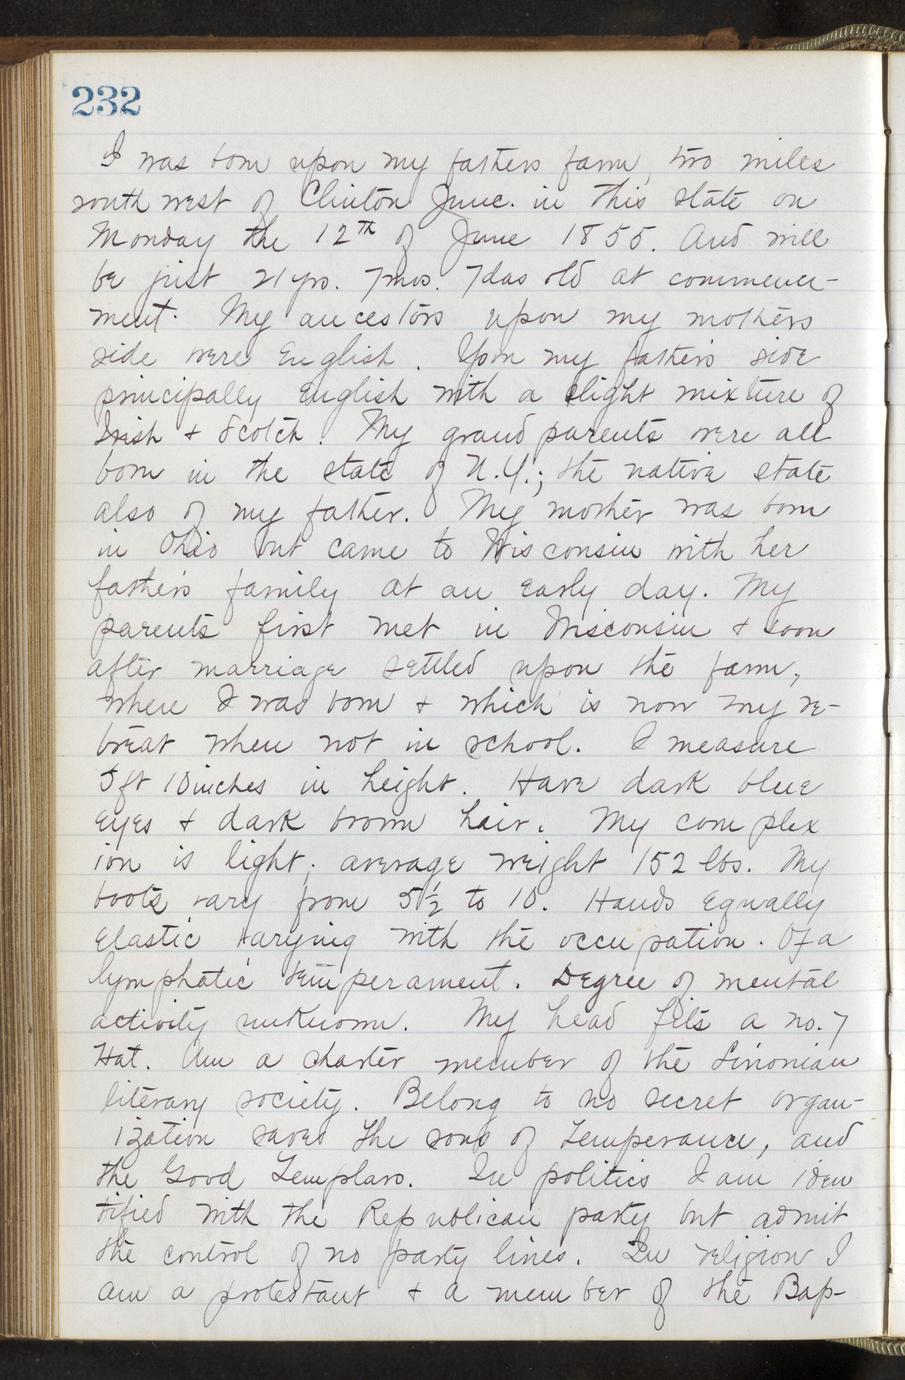 232
I was born upon my fathers farm, two miles
south west of Clinton Junc. in this state on
Monday the 12th of June 1855. And will
be just 21 yrs. 7 mos. 7 das old at commence-
ment. My ancestors upon my mothers
side were English. Upon my father's side
principally English with a slight mixture of
Irish & Scotch. My grand parents were all
born in the state of N.Y.; the native state
also of my father. My mother was born
in Ohio but came to Wisconsin with her
father's family at an early day. My
parents first met in Wisconsin & soon
after marriage settled upon the farm,
where I was born & which is now my re-
treat when not in school. I measure
5 ft 10 inches in height. Have dark blue
eyes & dark brown hair. My complex
ion is light; average weight 152 lbs. My
boots vary from 5 1/2 to 10. Hands equally
elastic varying with the occupation. Of a
lymphatic temperament. Degree of mental
activity unknown. My head fits a no. 7
Hat. Am a charter member of the Linonian
literary society. Belong to no secret organ-
ization saves the sons of Temperance, and
the Good Templars. In politics I am iden
tified with the Republican party but admit
the control of no party lines. In religion I
am a protestant & a member of the Bap-